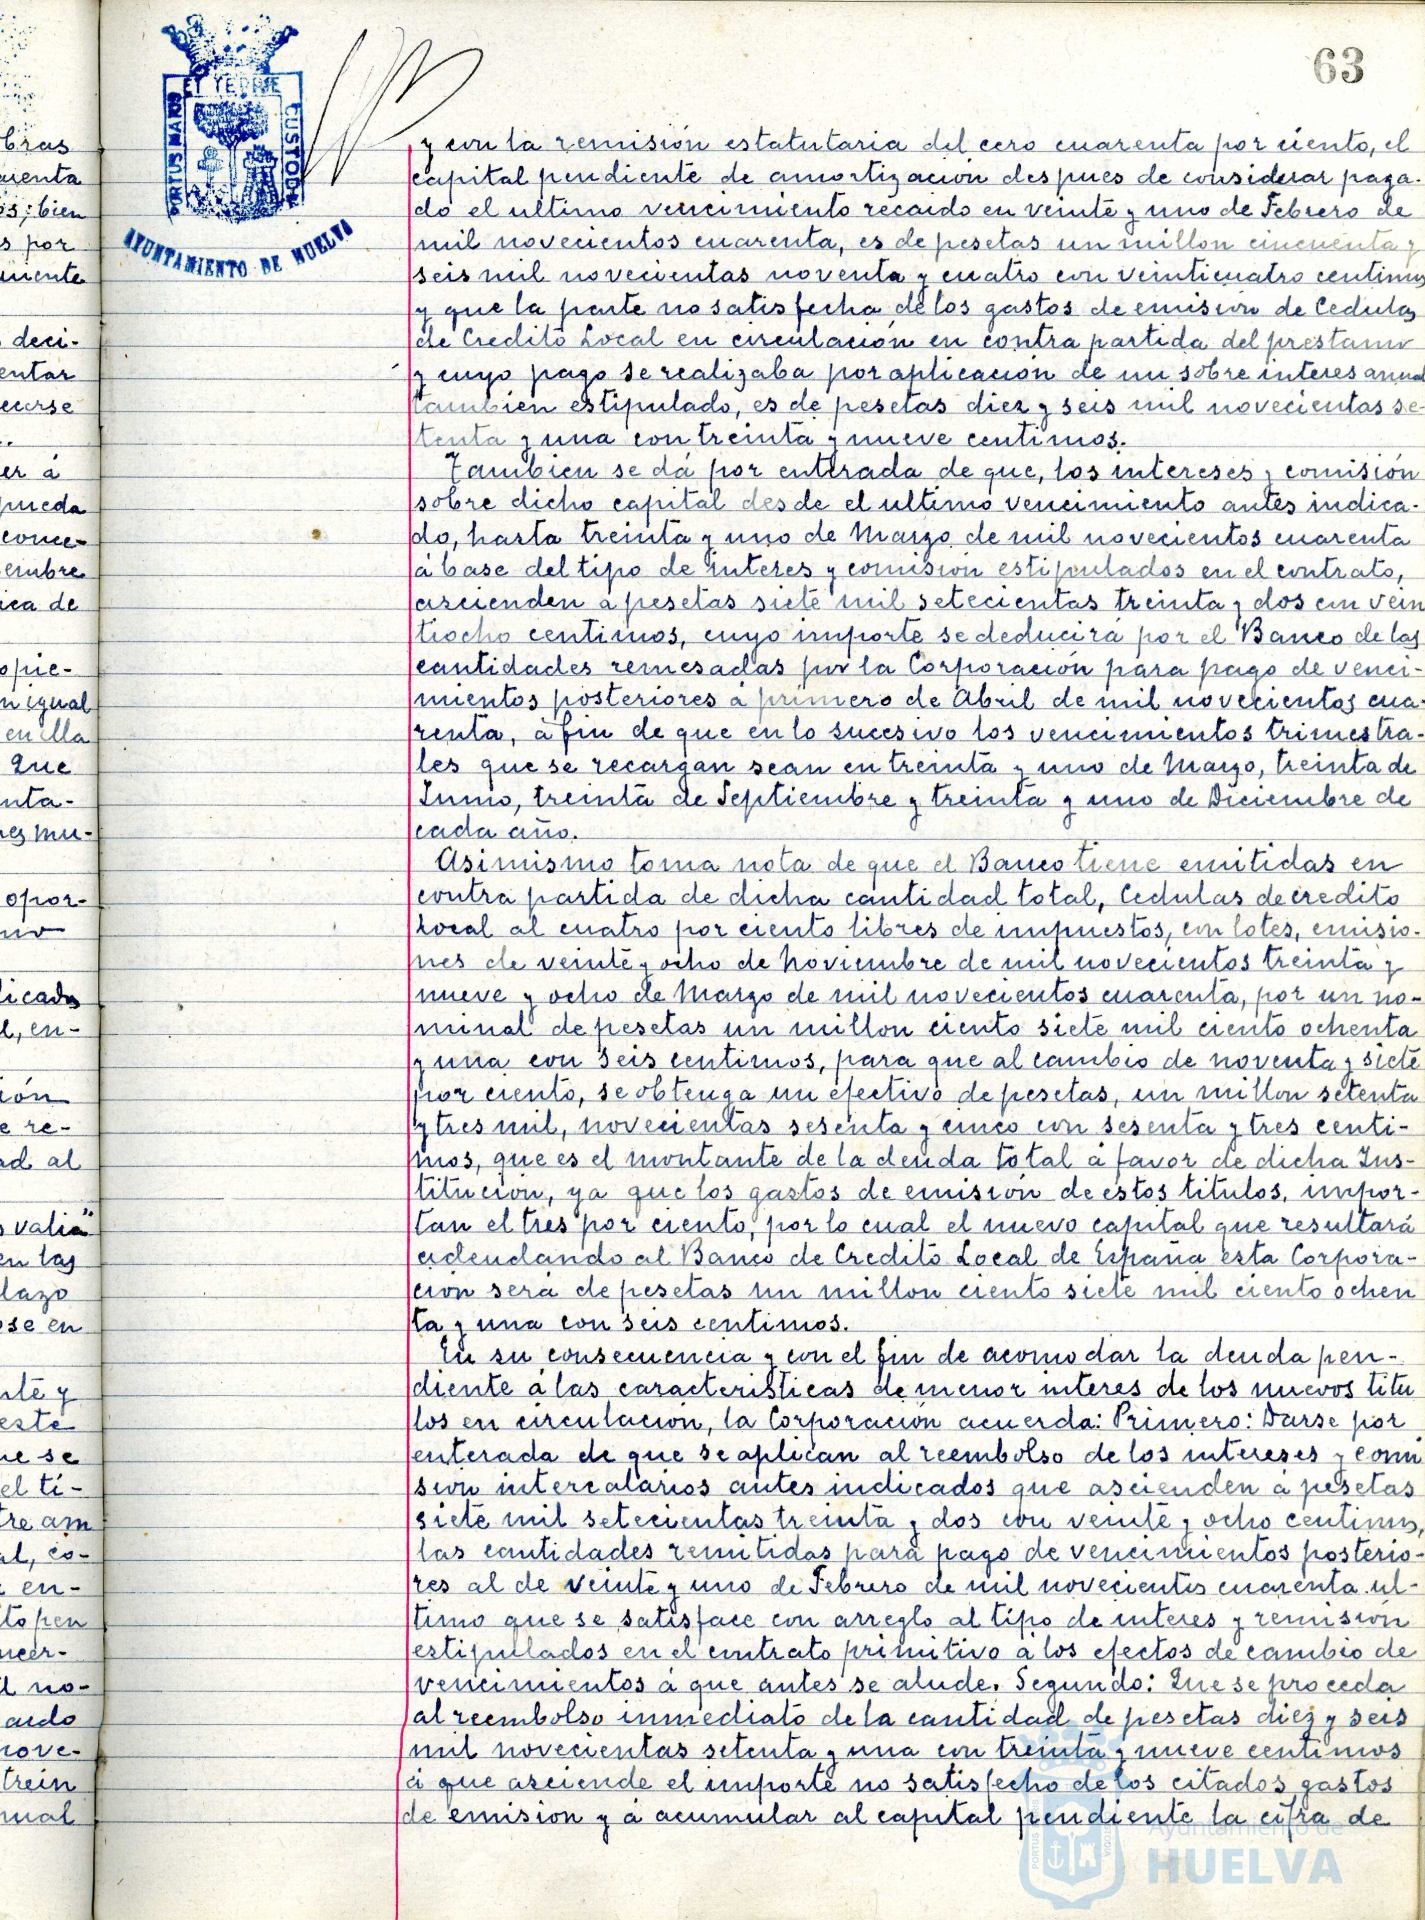 63
ET TERRE
PORTUS MARIS
CUSTODIA
AYUNTAMIENTO DE HUELVA
y con la remisión estatutaria del cero cuarenta por ciento, el
capital pendiente de amortización despues de considerar paga-
do el ultimo vencimiento recaido en veinte y uno de Febrero de
mil novecientos cuarenta, es de pesetas un millon cincuenta y
seis mil novecientas noventa y cuatro con veinticuatro centimos
y que la parte no satisfecha de los gastos de emision de Cedulas
de Credito Local en circulación en contra partida del prestamo
y cuyo pago se realizaba por aplicación de un sobre interes anual
tambien estipulado, es de pesetas diez y seis mil novecientas se-
tenta y una con treinta y nueve centimos.
Tambien se dá por enterada de que, los intereses y comisión
sobre dicho capital desde el ultimo vencimiento antes indica-
do, hasta treinta y uno de Marzo de mil novecientos cuarenta
á base del tipo de interes y comisión estipulados en el contrato,
ascienden a pesetas siete mil setecientas treinta y dos con vein
tiocho centimos, cuyo importe se deducirá por el Banco de las
cantidades remesadas por la Corporación para pago de venci-
mientos posteriores á primero de Abril de mil novecientos cua-
renta, á fin de que en lo sucesivo los vencimientos trimestra-
les que se recargan sean en treinta y uno de Marzo, treinta de
Junio, treinta de Septiembre y treinta y uno de Diciembre de
cada año.
Asimismo toma nota de que el Banco tiene emitidas en
contra partida de dicha cantidad total, Cedulas de credito
Local al cuatro por ciento libres de impuestos, con lotes, emisio-
nes de veinte y ocho de Noviembre de mil novecientos treinta y
nueve y ocho de Marzo de mil novecientos cuarenta, por un no-
minal de pesetas un millon ciento siete mil ciento ochenta
y una con seis centimos, para que al cambio de noventa y siete
por ciento, se obtenga un efectivo de pesetas, un millon setenta
y tres mil, novecientas sesenta y cinco con sesenta y tres centi-
mos, que es el montante de la deuda total á favor de dicha Ins-
titución, ya que los gastos de emisión de estos titulos, impor-
tan el tres por ciento, por lo cual el nuevo capital que resultará
adeudando al Banco de Credito Local de España esta Corpora-
ción será de pesetas un millon ciento siete mil ciento ochen
ta y una con seis centimos.
En su consecuencia y con el fin de acomodar la deuda pen-
diente á las caracteristicas de menor interes de los nuevos titu
los en circulación, la Corporación acuerda: Primero: Darse por
enterada de que se aplican al reembolso de los intereses y comi
sion intercalarios antes indicados que ascienden á pesetas
siete mil setecientas treinta y dos con veinte y ocho centimos,
las cantidades remitidas para pago de vencimientos posterio-
res al de veinte y uno de Febrero de mil novecientos cuarenta ul-
timo que se satisface con arreglo al tipo de interes y remisión
estipulados en el contrato primitivo á los efectos de cambio de
vencimientos á que antes se alude. Segundo: Que se proceda
al reembolso inmediato de la cantidad de pesetas diez y seis
mil novecientas setenta y una con treinta y nueve centimos
á que asciende el importe no satisfecho de los citados gastos
de emision y á acumular al capital pendiente la cifra de
Ayuntamiento de
HUELVA
bras
arenta
os; bien
s por
amente
deci-
entar
ecerse
er á
pueda
conce-
embre
ica de
opie-
n igual
en ella
Que
nta-
nes mu-
opor-
mo
licados
l, en-
ión
e re-
ad al
s valia"
en las
lazo
ose en
nte y
este
ue se
el ti-
tre am
al, co-
en-
to pen
ncer-
il no-
aido
nove-
trein
nual